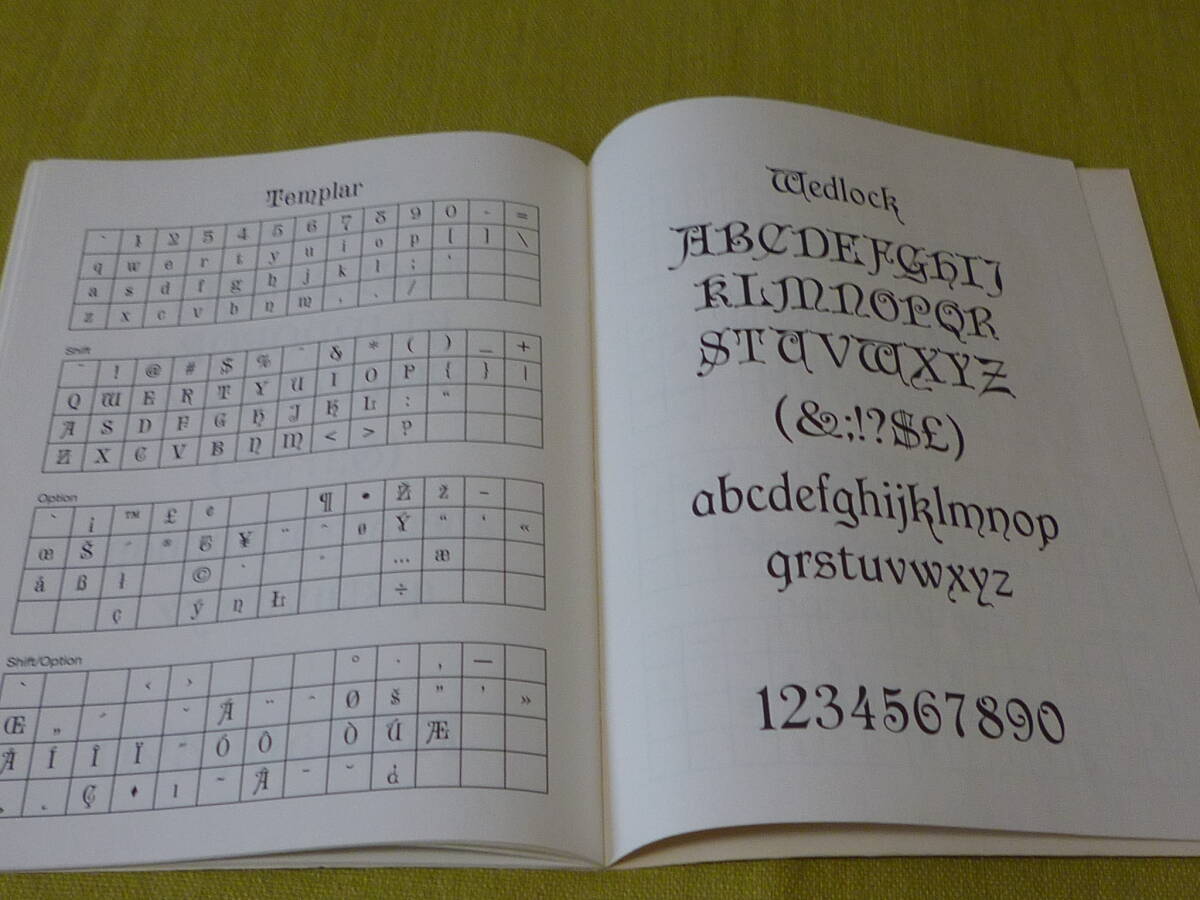 Templar
` 1 2 3 4 5 6 7 8 9 0 - =
q w e r t y u i o p [ ] \
a s d f g h j k l ; '
z x c v b n m , . /
Shift
~ ! @ # $ % ˆ & * ( ) _ +
Q W E R T Y U I O P { } |
A S D F G H J K L : "
Z X C V B N M < > ?
Option
` ¡ ™ £ ¶ • Ž ž –
œ Š ´ ® ¥ ¨ ˆ ø Ý “ ‘ «
å ß ł © ˙ ˚ … æ
ç ý Ł ÷
Shift/Option
` ‹ › ° · ‚ —
Œ „ ´ ˇ Á ¨ ˆ Ø š ” ’ »
Å Í Î Ï ˝ Ó Ô Ò Ú Æ
¸ ˛ Ç ♦ ı ˜ Â ¯ ˘
Wedlock
ABCDEFGHIJ
KLMNOPQR
STUVWXYZ
(&;!?$£)
abcdefghijklmnop
qrstuvwxyz
1234567890